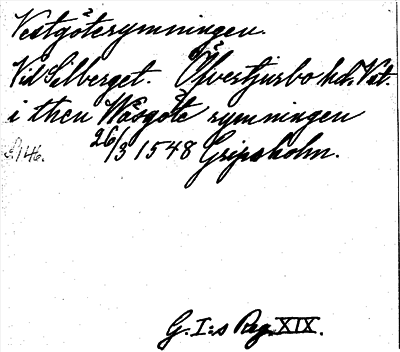 Vestgötesrymningen.
Vid Silberget. Öfvertjurbo hd, Vst.
i then Wäsgöte rymningen
26/3 1548 Gripsholm.
s. 146.
G. I:s Reg. XIX.